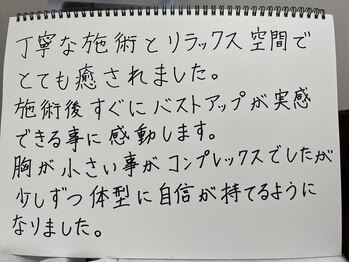 丁寧な施術とリラックス空間で
とても癒されました。
施術後すぐにバストアップが実感
できる事に感動します。
胸が小さい事がコンプレックスでしたが
少しずつ体型に自信が持てるように
なりました。